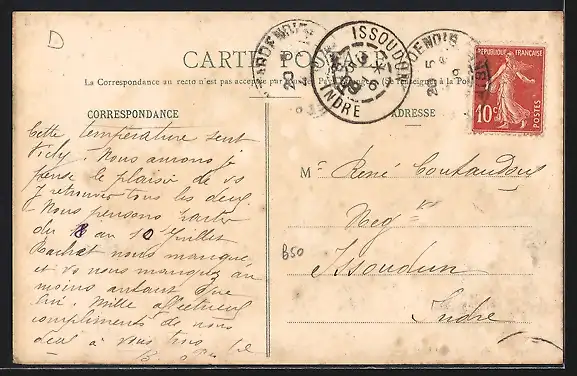 D
CARTE POSTALE
La Correspondance au recto n'est pas acceptée par
ISSOUDUN
INDRE
RÉPUBLIQUE FRANÇAISE
10c
POSTES
CORRESPONDANCE
ADRESSE
Cette température sent
Vichy. Nous aurons je
pense le plaisir de vs
y retrouver tous les deux
Nous pensons partir
du 8 au 10 Juillet
Rachel nous manque
et vs nous manquez au
moins autant que
lui. Mille affectueux
compliments de nous
deux à vous tous
Mr René Coutaudous
Negt
B50
Issoudun
Indre